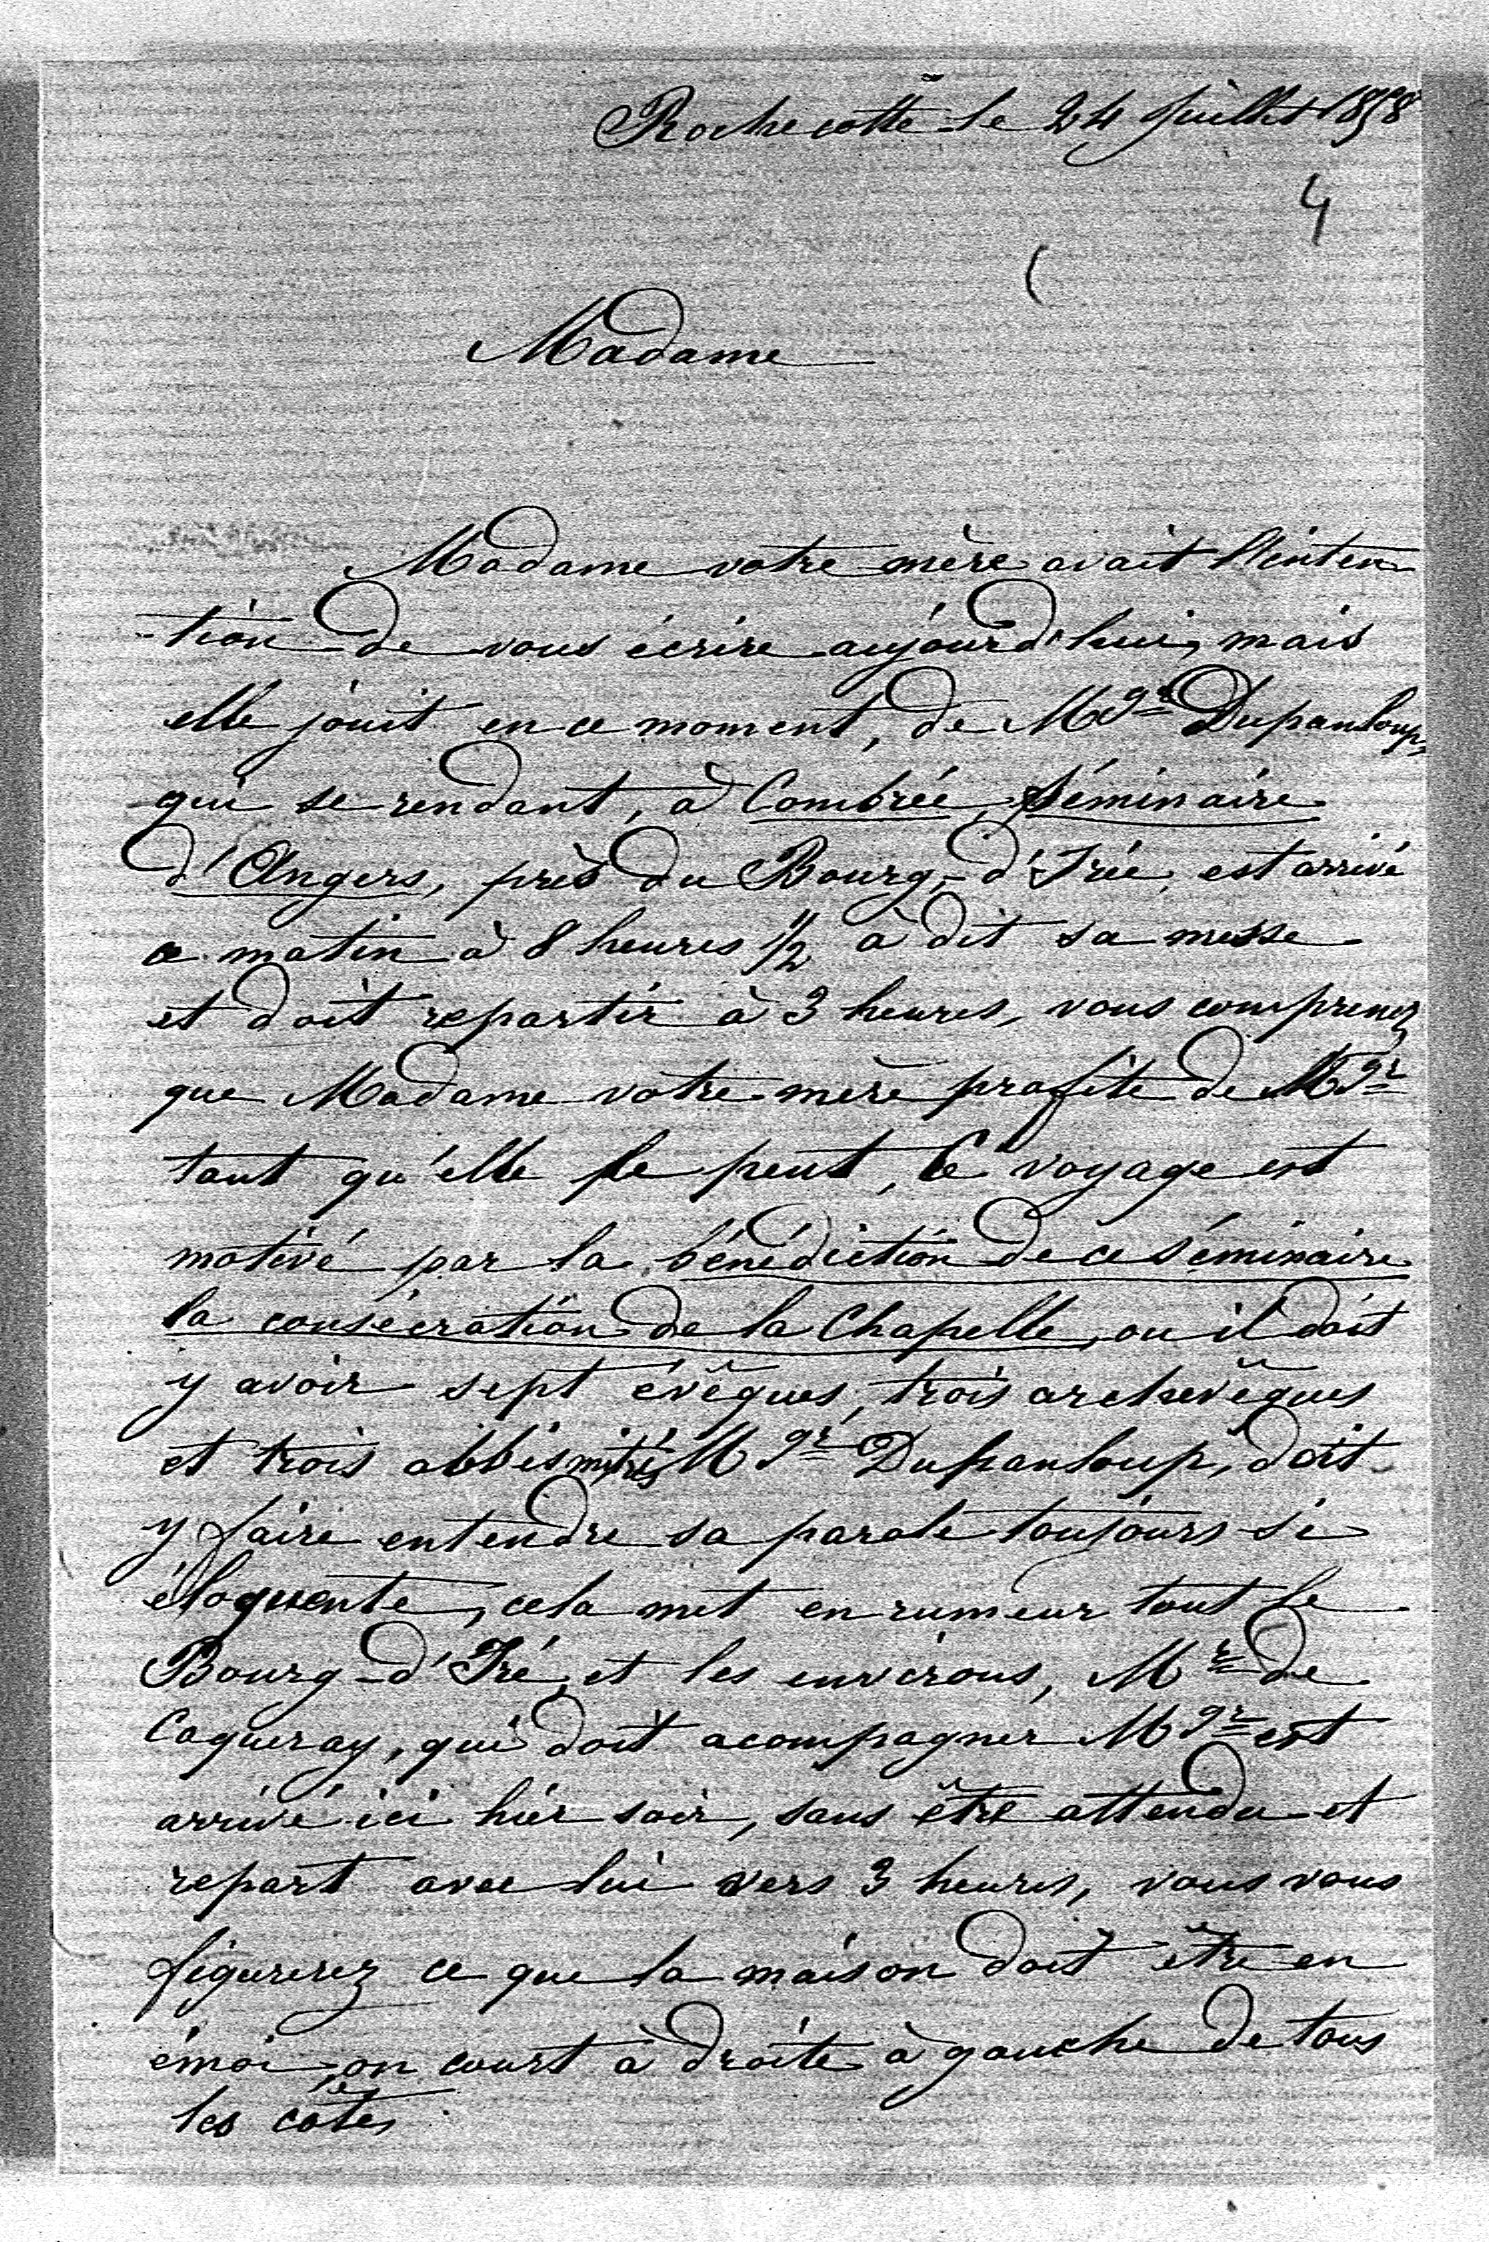 Rochecotte le 24 Juillet 1858
4
Madame
Madame votre mère avait l'inten
-tion de vous écrire aujourd'hui, mais
elle jouit en ce moment, de Mgr Dupanloup,
qui se rendant, à Combrée, Séminaire
d'Angers, près du Bourg-d'Irée, est arrivé
ce matin à 8 heures 1/2 à dit sa messe
et doit repartir à 3 heures, vous comprenez
que Madame votre mère profite de Mgr
tant qu'elle le peut, Ce voyage est
motivé par la bénédiction de ce Séminaire
la consécration de la Chapelle, ou il doit
y avoir sept évêques, trois archevêques
et trois abbés mitrés Mgr Dupanloup, doit
y faire entendre sa parole toujours si
éloquente, cela met en rumeur tout le
Bourg-d'Iré, et les environs, Mr de
Caqueray, qui doit acompagner Mgr est
arrivé ici hier soir, sans être attendu et
repart avec lui vers 3 heures, vous vous
figurerez ce que la maison doit être en
émoi, on court à droite à gauche de tous
les côtés